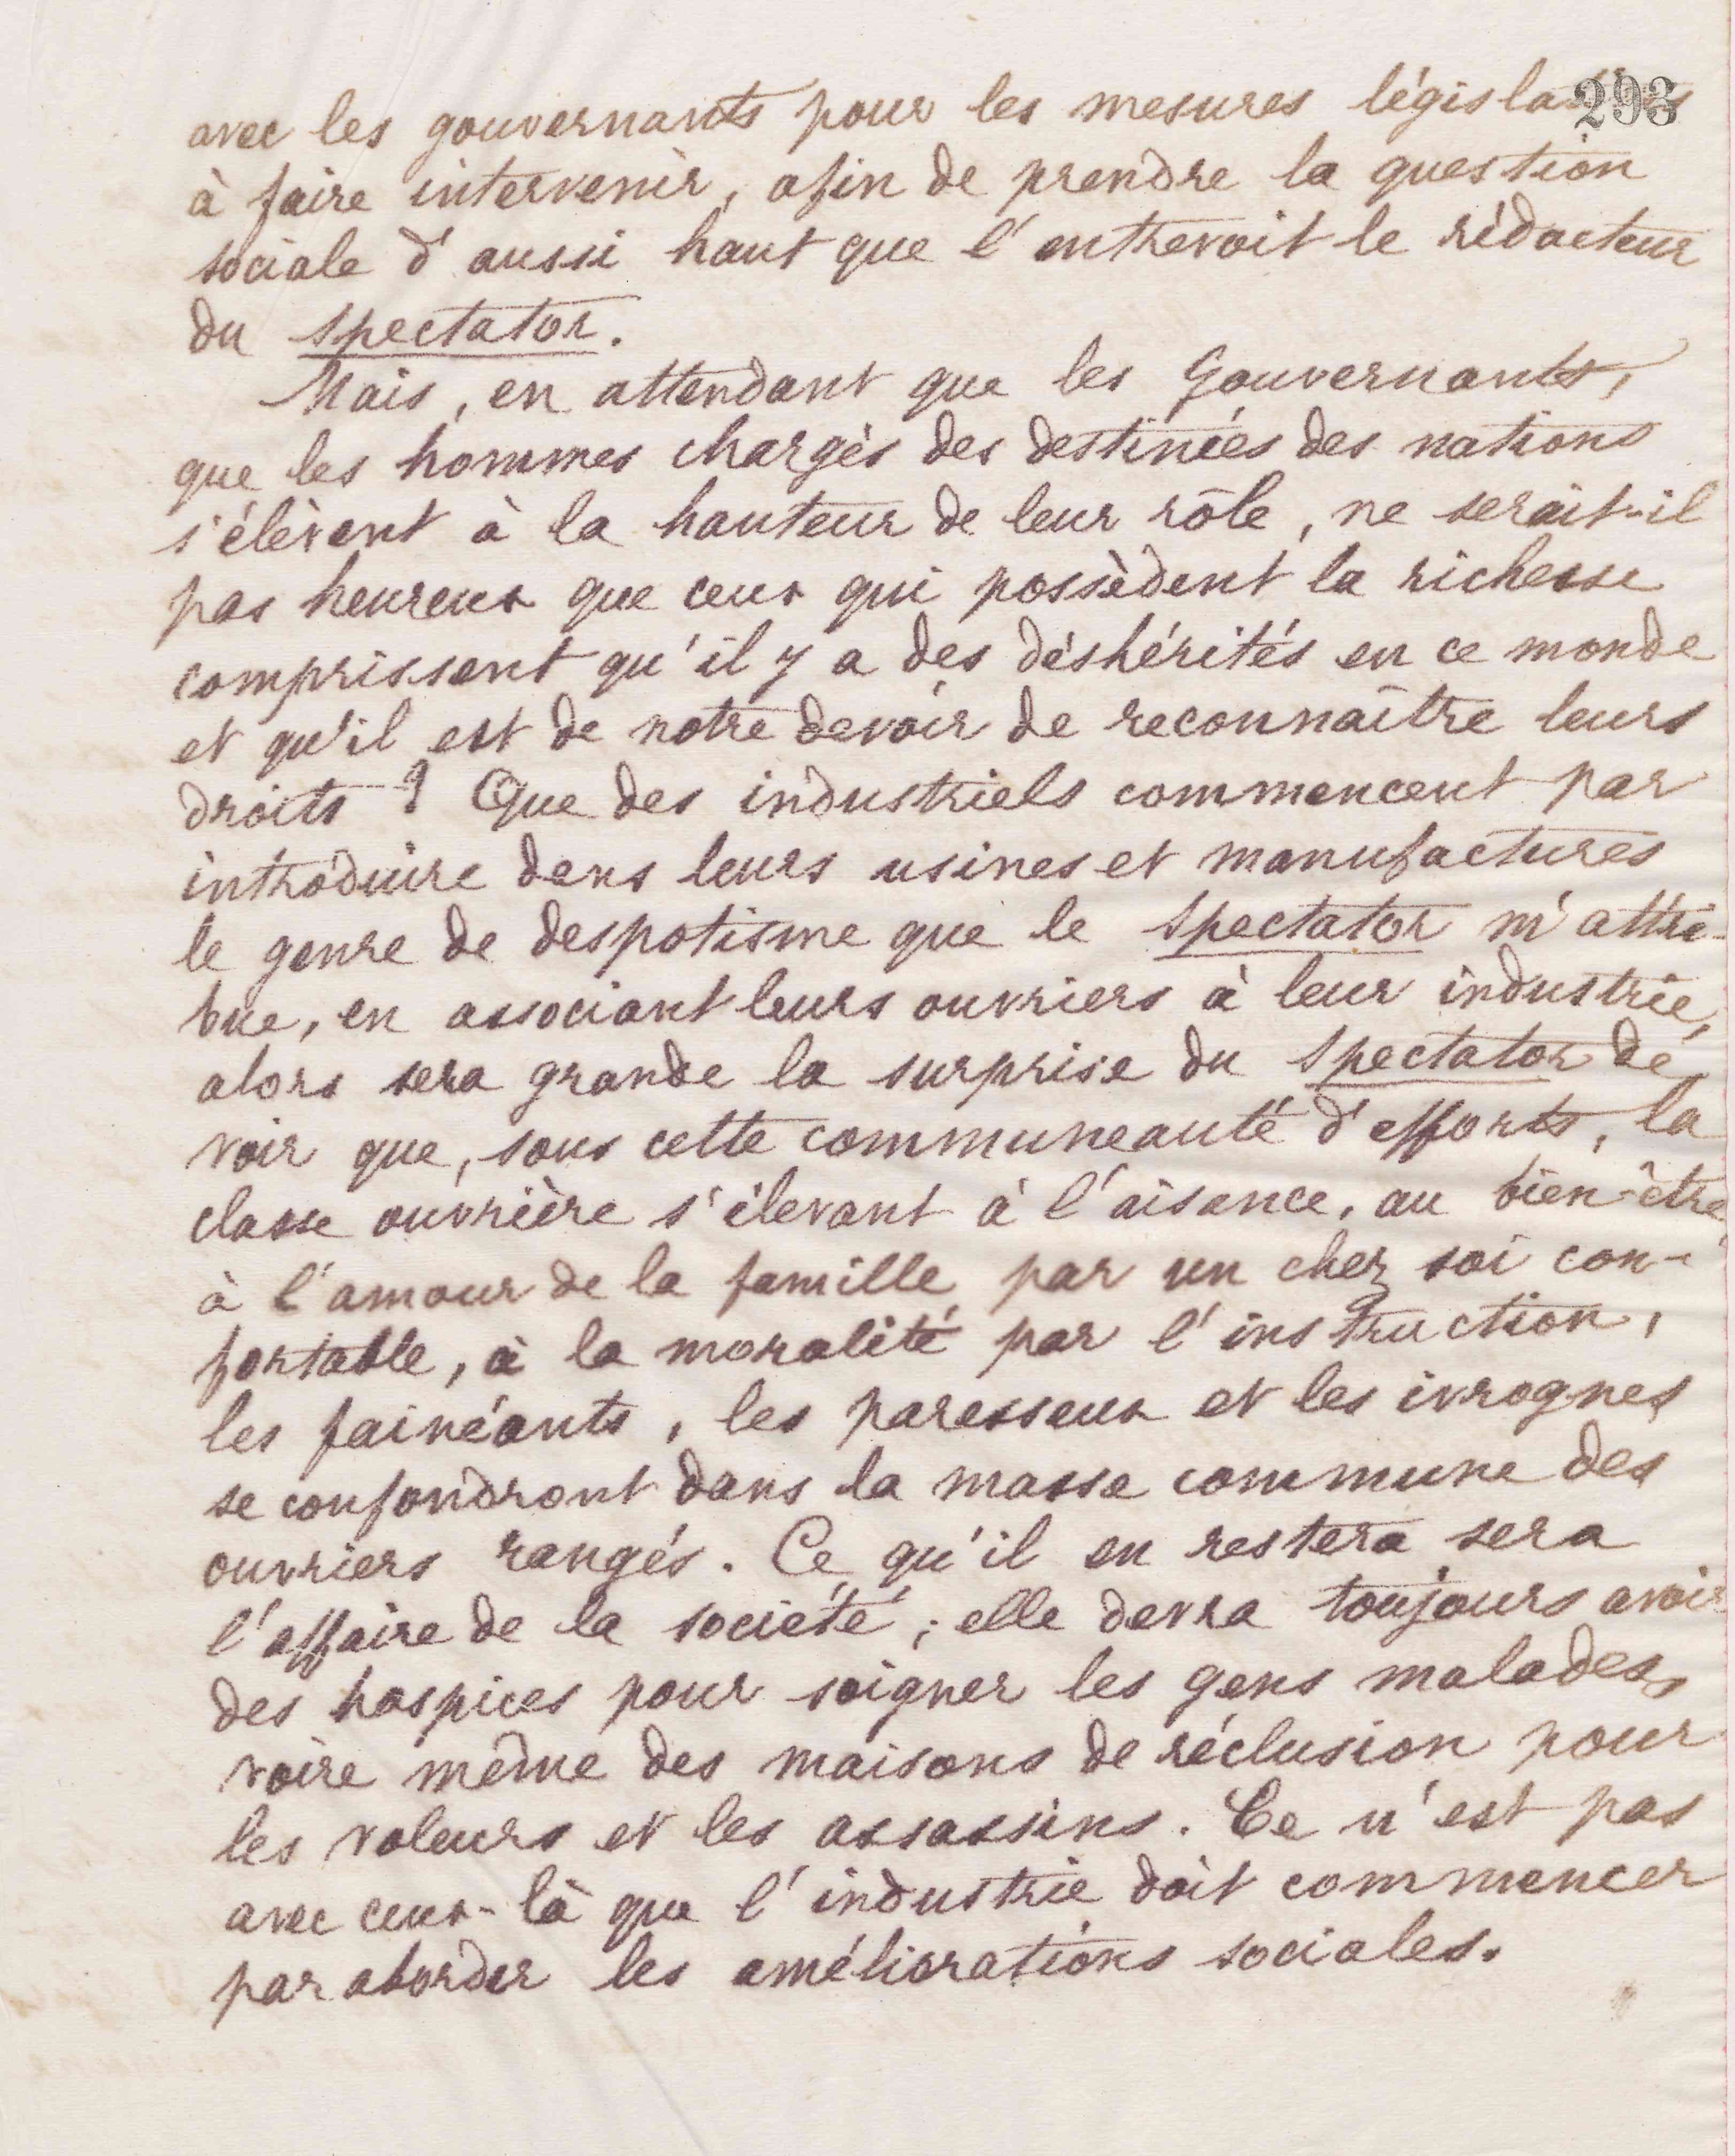 293
avec les gouvernants pour les mesures législatives
à faire intervenir, afin de prendre la question
sociale d'aussi haut que l'entrevoit le rédacteur
du Spectator.
Mais, en attendant que les Gouvernants,
que les hommes chargés des destinées des nations
s'élèvent à la hauteur de leur rôle, ne serait-il
pas heureux que ceux qui possèdent la richesse
comprissent qu'il y a des déshérités en ce monde
et qu'il est de notre devoir de reconnaître leurs
droits ? Que des industriels commencent par
introduire dans leurs usines et manufactures
le genre de despotisme que le Spectator m'attri-
bue, en associant leurs ouvriers à leur industrie,
alors sera grande la surprise du Spectator de
voir que, sous cette communeauté d'efforts, la
classe ouvrière s'élevant à l'aisance, au bien-être,
à l'amour de la famille par un chez soi con-
fortable, à la moralité par l'instruction,
les fainéants, les paresseux et les ivrognes
se confondront dans la masse commune des
ouvriers rangés. Ce qu'il en restera sera
l'affaire de la société ; elle devra toujours avoir
des hospices pour soigner les gens malades,
voire même des maisons de réclusion pour
les voleurs et les assassins. Ce n'est pas
avec ceux-là que l'industrie doit commencer
par aborder les améliorations sociales.